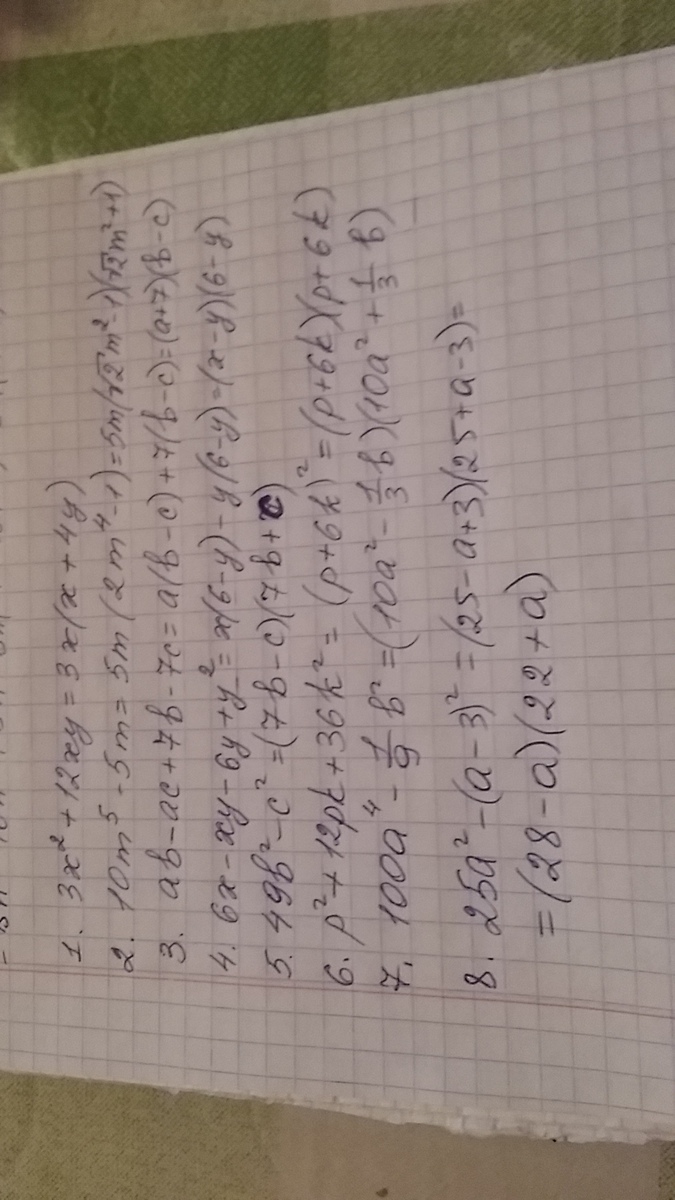 1. 3x² + 12xy = 3x(x + 4y)
2. 10m⁵ - 5m = 5m(2m⁴ - 1) = 5m(√2m² - 1)(√2m² + 1)
3. ab - ac + 7b - 7c = a(b - c) + 7(b - c) = (a + 7)(b - c)
4. 6x - xy - 6y + y² = x(6 - y) - y(6 - y) = (x - y)(6 - y)
5. 49b² - c² = (7b - c)(7b + c)
6. p² + 12pk + 36k² = (p + 6k)² = (p + 6k)(p + 6k)
7. 100a⁴ - 1/9 b² = (10a² - 1/3 b)(10a² + 1/3 b)
8. 25a² - (a - 3)² = (25 - a + 3)(25 + a - 3) =
= (28 - a)(22 + a)